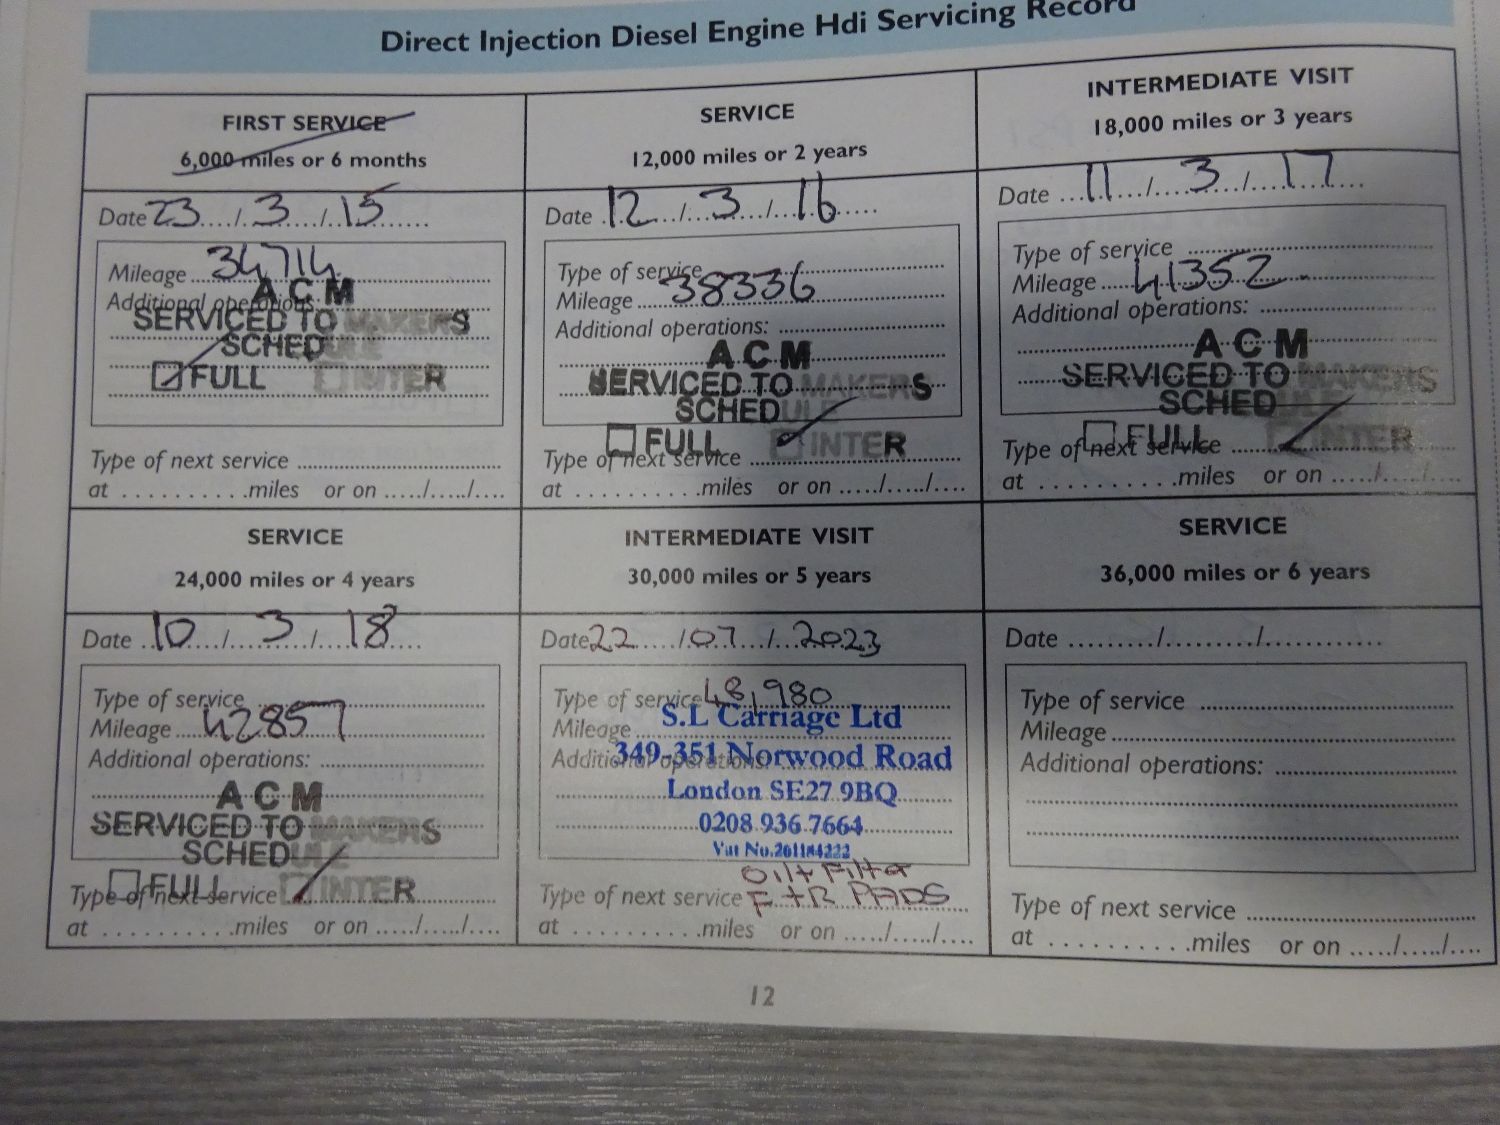 Direct Injection Diesel Engine Hdi Servicing Record
FIRST SERVICE
6,000 miles or 6 months
Date 23..../.3..../.15........
Mileage 34,714
Additional operations:
A C M
SERVICED TO MAKERS
SCHEDULE
FULL INTER
Type of next service ..............................
at . . . . . . . . . .miles or on ...../...../....
SERVICE
12,000 miles or 2 years
Date 12.../...3..../...16.....
Type of service
Mileage 38336
Additional operations:
A C M
SERVICED TO MAKERS
SCHEDULE
FULL INTER
Type of next service
at . . . . . . . . . .miles or on ...../...../....
INTERMEDIATE VISIT
18,000 miles or 3 years
Date ...11.../....3.../...17...
Type of service
Mileage 41352
Additional operations:
A C M
SERVICED TO MAKERS
SCHEDULE
FULL INTER
Type of next service
at . . . . . . . . . .miles or on ...../...../....
SERVICE
24,000 miles or 4 years
Date 10..../...3..../...18...
Type of service
Mileage 42857
Additional operations:
A C M
SERVICED TO MAKERS
SCHEDULE
FULL INTER
Type of next service
at . . . . . . . . . .miles or on ...../...../....
INTERMEDIATE VISIT
30,000 miles or 5 years
Date 22...../07.../...2023
Type of service 48,980
S.L Carriage Ltd
Mileage
Additional operations:
349-351 Norwood Road
London SE27 9BQ
0208 936 7664
Vat No.261184222
Oil + Filter
Type of next service F + R PADS
at . . . . . . . . . .miles or on ...../...../....
SERVICE
36,000 miles or 6 years
Date ........./........./............
Type of service
Mileage
Additional operations:
Type of next service
at . . . . . . . . . .miles or on ...../...../....
12